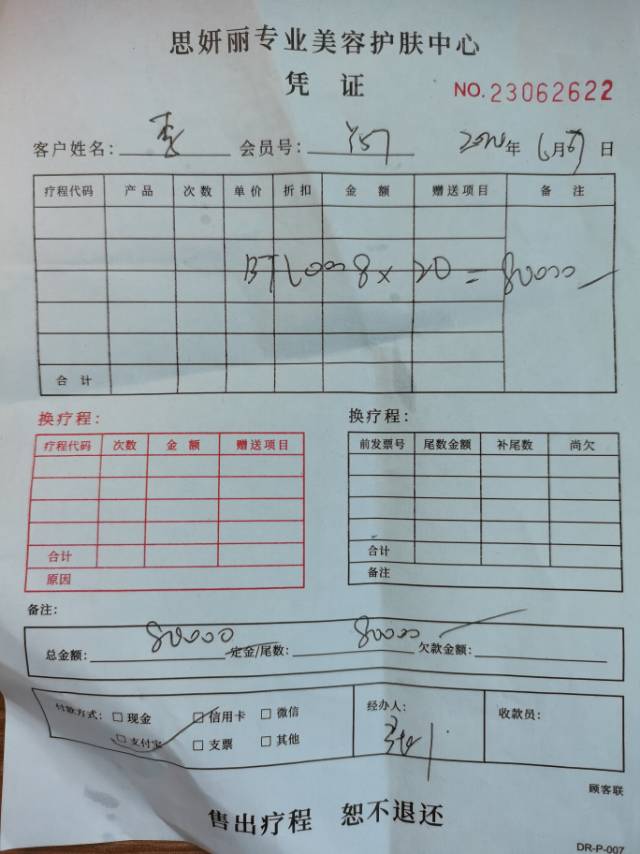 思妍丽专业美容护肤中心
凭 证
NO. 23062622
客户姓名： 李 会员号： 年 6月 日
疗程代码 产品 次数 单价 折扣 金额 赠送项目 备注
8 × 20 = 80000
合计
换疗程：
疗程代码 次数 金额 赠送项目
合计
原因
换疗程：
前发票号 尾数金额 补尾数 尚欠
合计
备注
备注：
总金额： 80000 定金/尾数： 80000 欠款金额：
付款方式： □ 现金 □ 信用卡 □ 微信
□ 支付宝 □ 支票 □ 其他
经办人：
收款员：
顾客联
售出疗程 恕不退还
DR-P-007